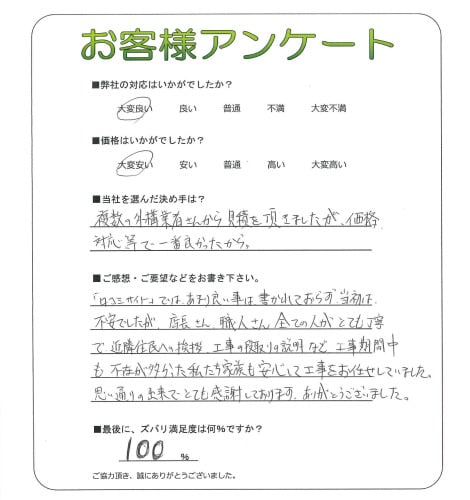 お客様アンケート
■弊社の対応はいかがでしたか？
大変良い 良い 普通 不満 大変不満
■価格はいかがでしたか？
大変安い 安い 普通 高い 大変高い
■当社を選んだ決め手は？
複数の外構業者さんから見積を頂きましたが、価格
対応等で一番良かったから。
■ご感想・ご要望などをお書き下さい。
「口コミサイト」では、あまり良い事は書かれておらず、当初は、
不安でしたが、店長さん、職人さん全ての人がとても丁寧
で近隣住民への挨拶、工事の段取りの説明など、工事期間中
も不在が多かった私たち家族も安心して工事をお任せしていました。
思い通りの出来でとても感謝しております。ありがとうございました。
■最後に、ズバリ満足度は何%ですか？
100 %
ご協力頂き、誠にありがとうございました。